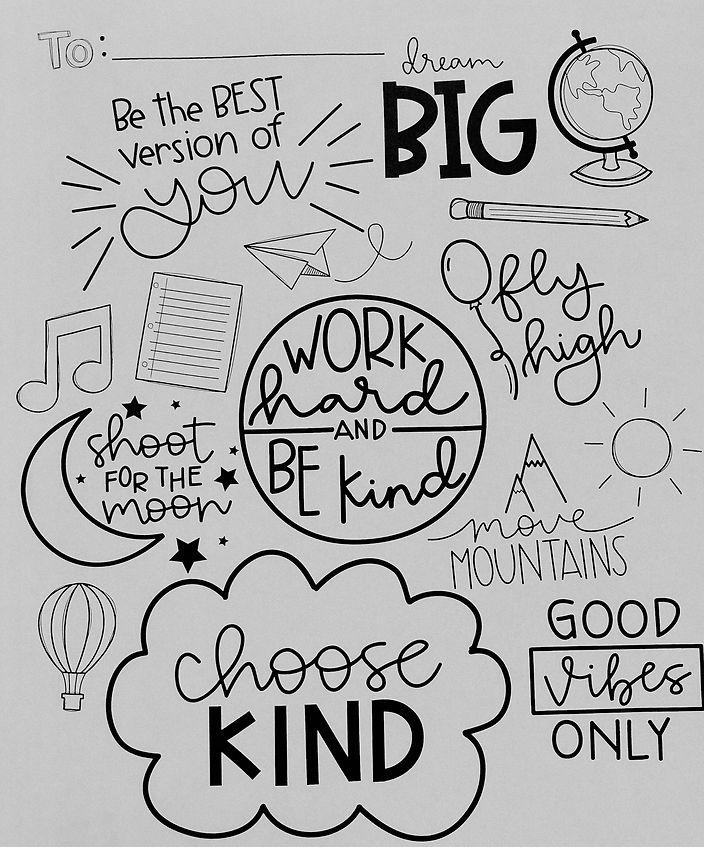 To:
dream
BIG
Be the BEST
version of
you
fly
high
WORK
hard
AND
BE kind
shoot
FOR THE
moon
move
MOUNTAINS
GOOD
vibes
ONLY
choose
KIND